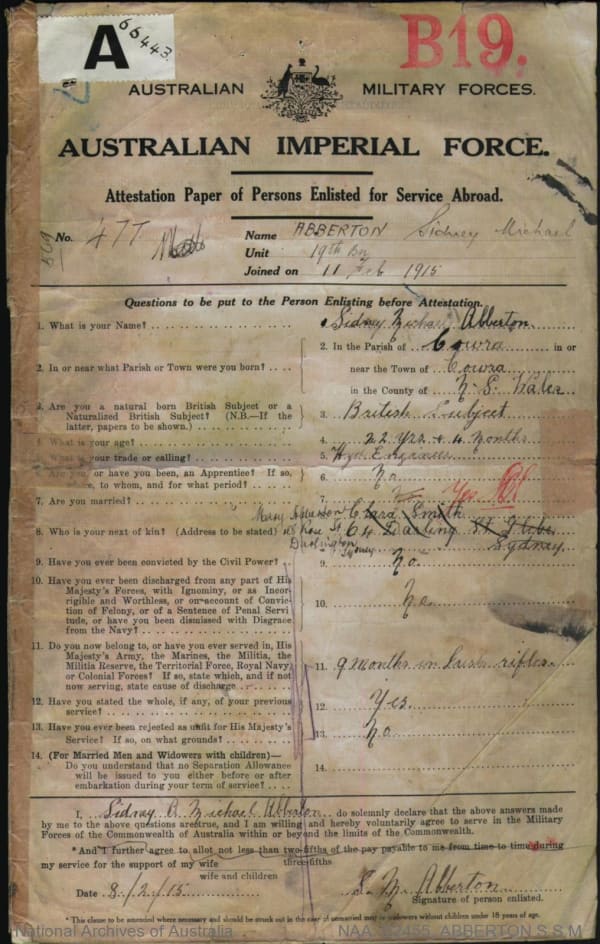 A 66443.
B19.
AUSTRALIAN MILITARY FORCES.
AUSTRALIAN IMPERIAL FORCE.
Attestation Paper of Persons Enlisted for Service Abroad.
No. 477 Name ABBERTON Sidney Michael
Unit 19th Bn
Joined on 11 Feb 1915
Questions to be put to the Person Enlisting before Attestation.
1. What is your Name? 1. Sidney Michael Abberton
2. In or near what Parish or Town were you born? 2. In the Parish of Cowra in or
near the Town of Cowra
in the County of N. S. Wales
3. Are you a natural born British Subject or a
Naturalized British Subject? (N.B.—If the
latter, papers to be shown.) 3. British Subject
4. What is your age? 4. 22 Yrs & 4 Months
5. What is your trade or calling? 5. Engineer
6. Are you, or have you been, an Apprentice? If so,
where, to whom, and for what period? 6. No
7. Are you married? 7. Yes
8. Who is your next of kin? (Address to be stated) 8. Mary Abberton Clara Smith
Rose St 64 Darling St Glebe
Darlington Sydney Sydney
9. Have you ever been convicted by the Civil Power? 9. No
10. Have you ever been discharged from any part of His
Majesty's Forces, with Ignominy, or as Incor-
rigible and Worthless, or on account of Convic-
tion of Felony, or of a Sentence of Penal Servi
tude, or have you been dismissed with Disgrace
from the Navy? 10. No
11. Do you now belong to, or have you ever served in, His
Majesty's Army, the Marines, the Militia, the
Militia Reserve, the Territorial Force, Royal Navy
or Colonial Forces? If so, state which, and if not
now serving, state cause of discharge 11. 9 months in Irish rifles
12. Have you stated the whole, if any, of your previous
service? 12. Yes
13. Have you ever been rejected as unfit for His Majesty's
Service? If so, on what grounds? 13. No
14. (For Married Men and Widowers with children)—
Do you understand that no Separation Allowance
will be issued to you either before or after
embarkation during your term of service? 14.
I, Sidney Michael Abberton do solemnly declare that the above answers made
by me to the above questions are true, and I am willing and hereby voluntarily agree to serve in the Military
Forces of the Commonwealth of Australia within or beyond the limits of the Commonwealth.
*And I further agree to allot not less than two-fifths of the pay payable to me from time to time during
three-fifths
my service for the support of my wife
wife and children
Date 8/2/15 S. M. Abberton
Signature of person enlisted.
* This clause to be amended where necessary and should be struck out in the case of unmarried men or widowers without children under 18 years of age.
National Archives of Australia ABBERTON S S M